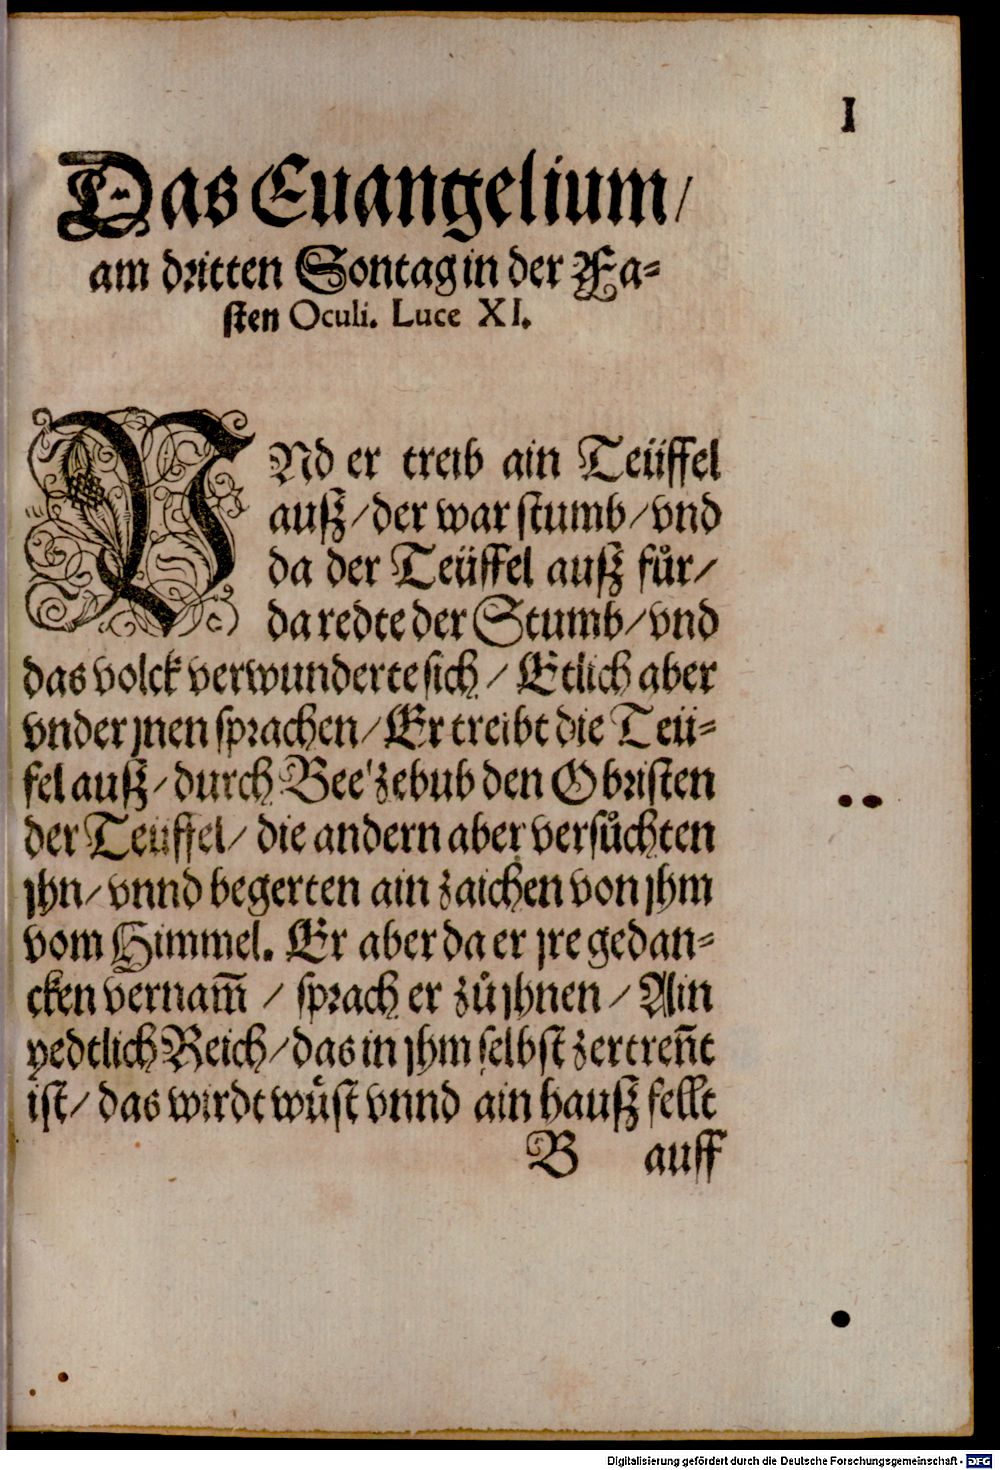 I
Das Euangelium/
am dritten Sontag in der Fa-
sten Oculi. Luce XI.
VNd er treib ain Teüffel
außz/der war stumb/vnd
da der Teüffel außz fůr/
da redte der Stumb/vnd
das volck verwunderte sich/ Etlich aber
vnder jnen sprachen/ Er treibt die Teü-
fel außz/durch Beelzebub den Obristen
der Teüffel/ die andern aber versůchten
jhn/ vnnd begerten ain zaichen von jhm
vom Himmel. Er aber da er jre gedan-
cken vernam̃ / sprach er zů jhnen / Ain
yedtlich Reich/das in jhm selbst zertreñt
ist/ das wirdt wůst vnnd ain haußz fellt
B auff
Digitalisierung gefördert durch die Deutsche Forschungsgemeinschaft - DFG